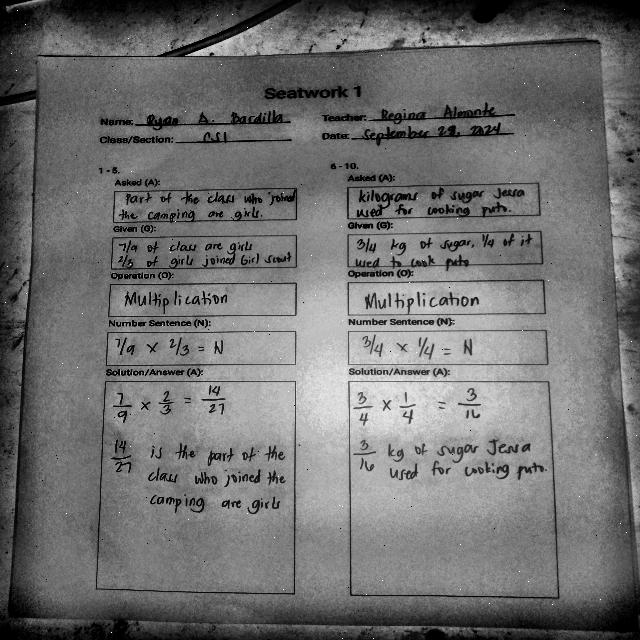 Seatwork 1
Name: Ryan A. Bardilla
Teacher: Regina Almonte
Class/Section: CSI
Date: September 28, 2024
1 - 5.
Asked (A):
Part of the class who joined
the camping are girls.
Given (G):
7/9 of class are girls
2/3 of girls joined Girl scout
Operation (O):
Multiplication
Number Sentence (N):
7/9 x 2/3 = N
Solution/Answer (A):
7/9 x 2/3 = 14/27
14/27 is the part of the
class who joined the
camping are girls
6 - 10.
Asked (A):
kilograms of sugar Jessa
used for cooking puto.
Given (G):
3/4 kg of sugar, 1/4 of it
used to cook puto
Operation (O):
Multiplication
Number Sentence (N):
3/4 . x 1/4 = N
Solution/Answer (A):
3/4 x 1/4 = 3/16
3/16 kg of sugar Jessa
used for cooking puto.